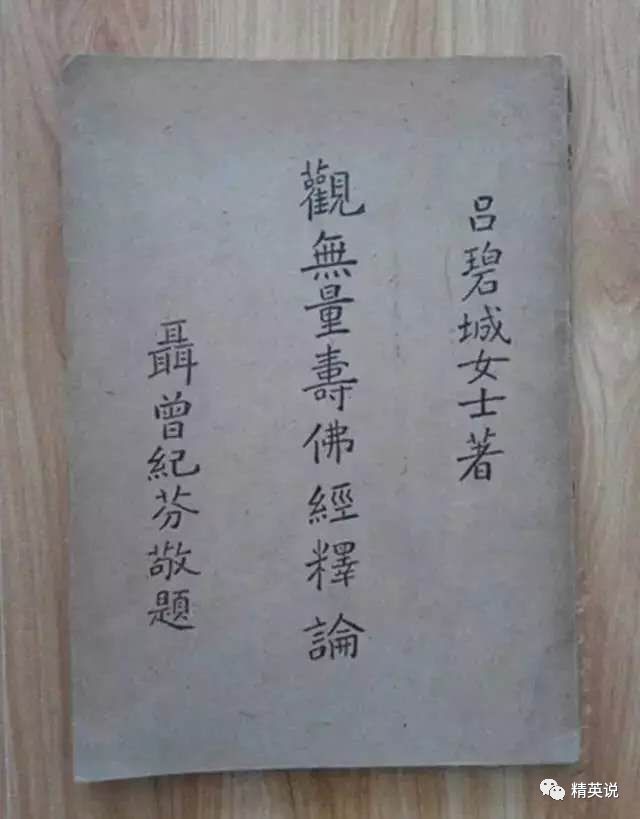 呂碧城女士著
觀無量壽佛經釋論
聶曾紀芬敬題
精英说